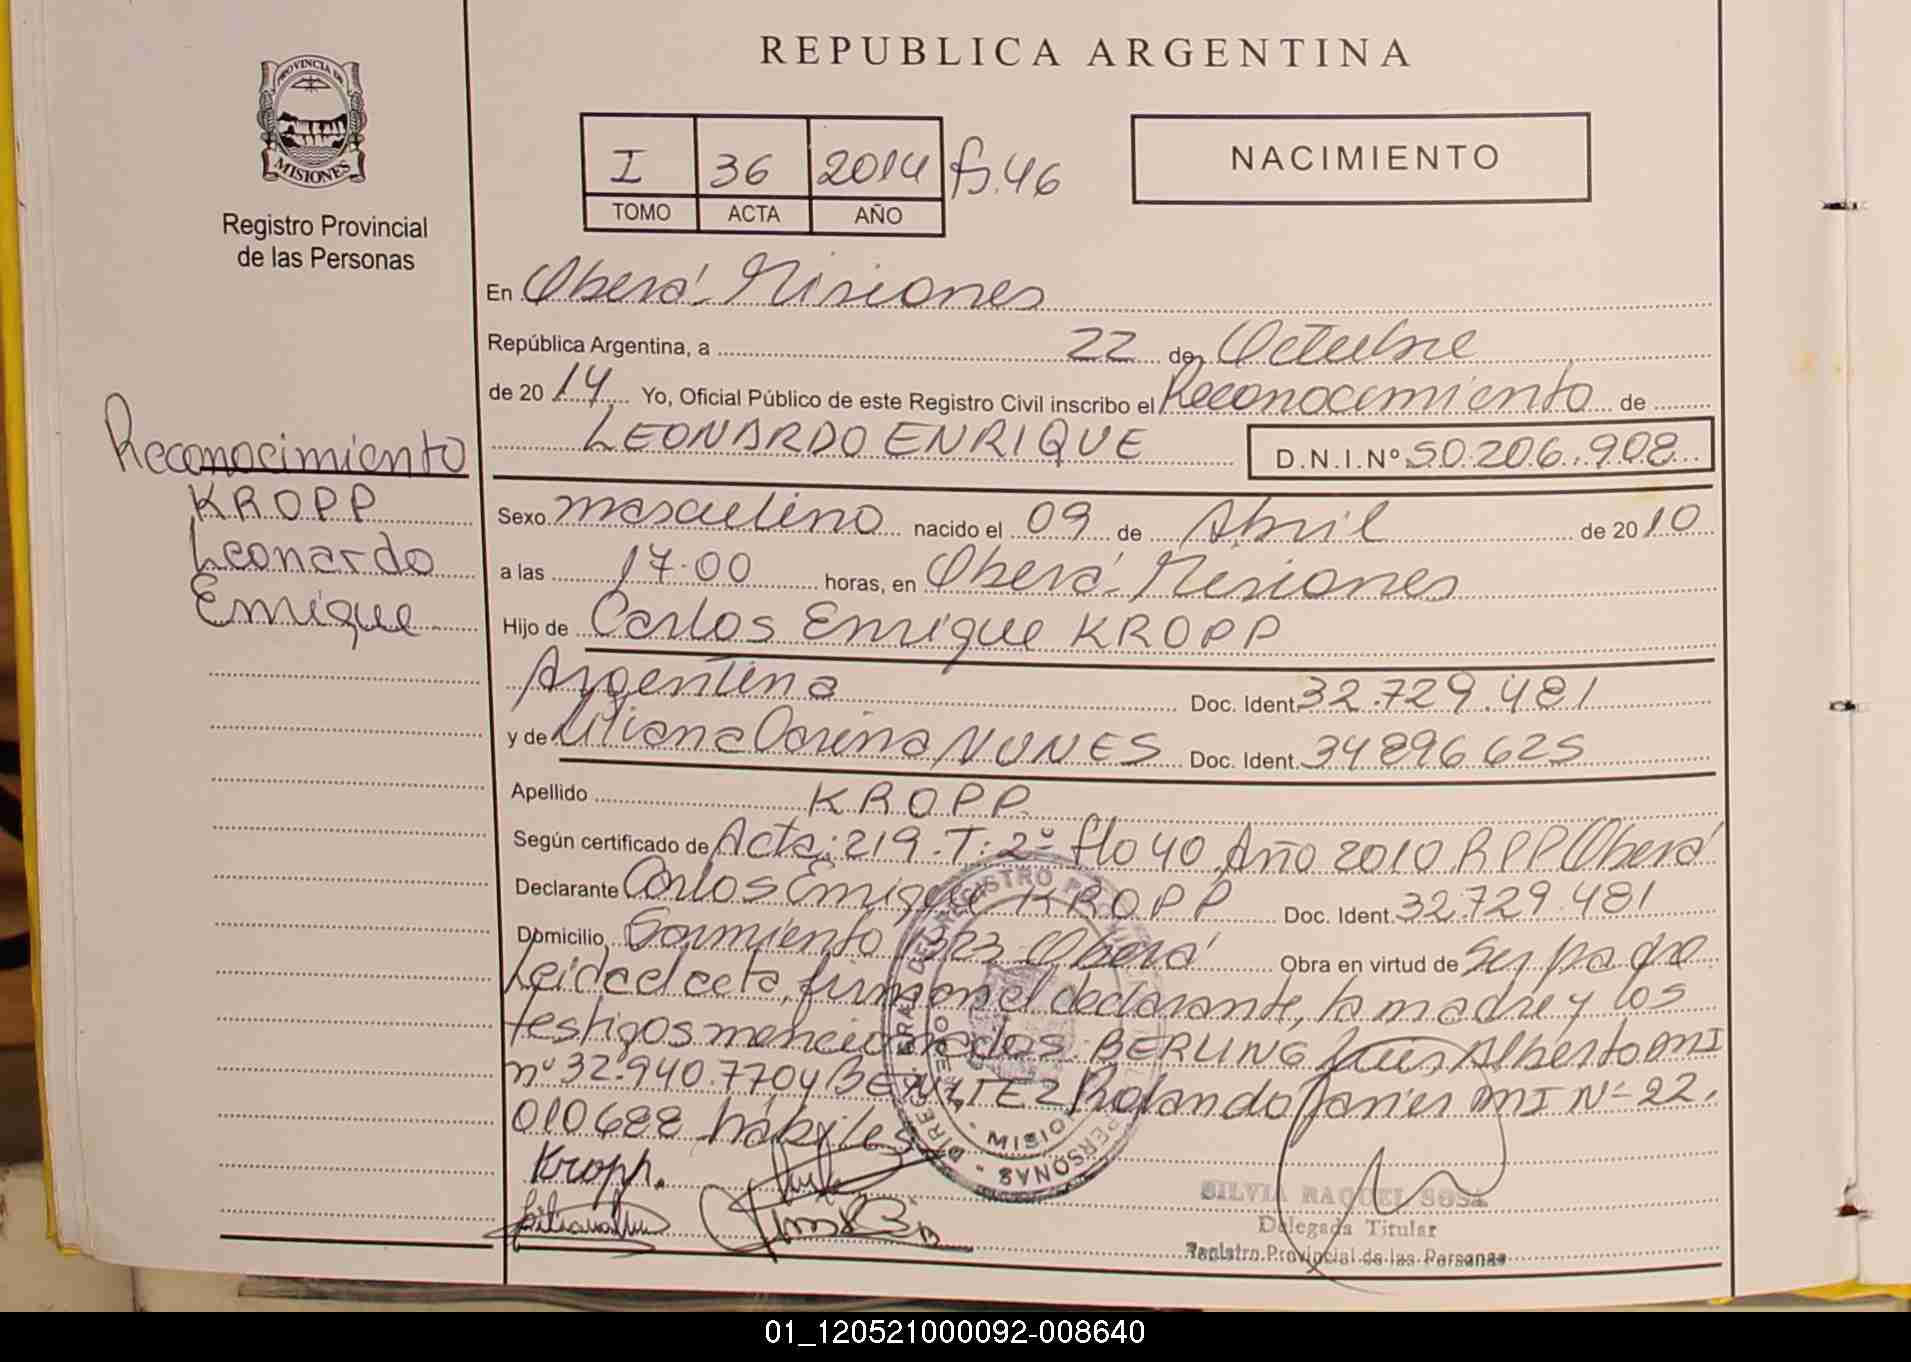 REPUBLICA ARGENTINA
PROVINCIA DE
MISIONES
Registro Provincial
de las Personas
I 36 2014 fs.46
TOMO ACTA AÑO
NACIMIENTO
En Oberá - Misiones
República Argentina, a 22 de Octubre
de 2014 Yo, Oficial Público de este Registro Civil inscribo el Reconocimiento de
LEONARDO ENRIQUE D.N.I.Nº 50.206.908
Reconocimiento
KROPP
Leonardo
Enrique
Sexo masculino nacido el 09 de Abril de 2010
a las 17.00 horas, en Oberá - Misiones
Hijo de Carlos Enrique KROPP
Argentina Doc. Ident. 32.729.481
y de Liliana Carina NUNES Doc. Ident. 34896625
Apellido KROPP
Según certificado de Acta: 219. T: 2º flo 40 Año 2010 RPP Oberá
Declarante Carlos Enrique KROPP Doc. Ident. 32.729.481
Domicilio Sarmiento 1323 Oberá Obra en virtud de ser padre
Leida el acta, firman el declarante, la madre y los
testigos mencionados. BERLING Luis Alberto MI
nº 32.940.770 y BENITEZ Rolando Javier MI Nº 22.
010688 hábiles
Kropp.
SILVIA RAQUEL SOSA
Delegada Titular
Registro Provincial de las Personas
01_120521000092-008640